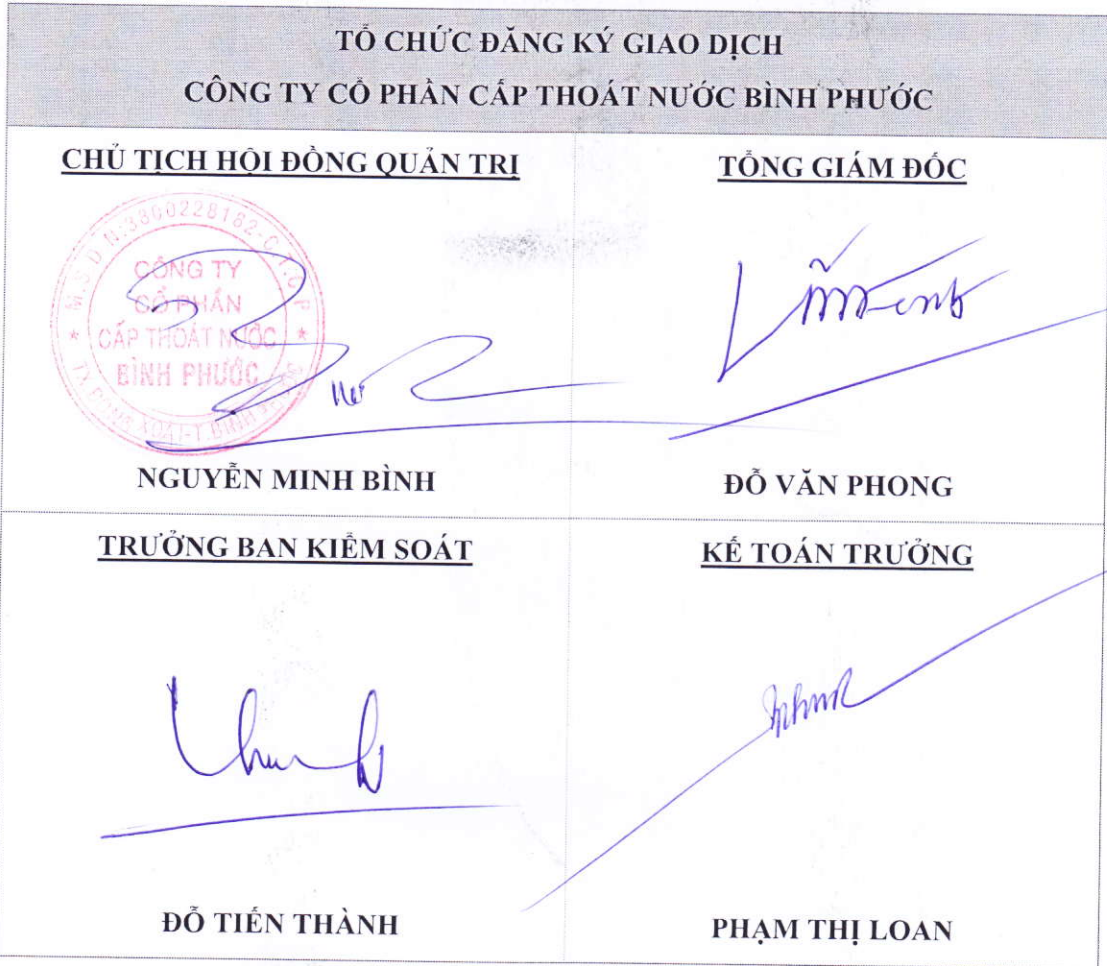 TỔ CHỨC ĐĂNG KÝ GIAO DỊCH
CÔNG TY CỔ PHẦN CẤP THOÁT NƯỚC BÌNH PHƯỚC
CHỦ TỊCH HỘI ĐỒNG QUẢN TRỊ
M.S.D.N:3800228182-C.T.C.P
CÔNG TY
CỔ PHẦN
CẤP THOÁT NƯỚC
BÌNH PHƯỚC
NGUYỄN MINH BÌNH
TỔNG GIÁM ĐỐC
ĐỖ VĂN PHONG
TRƯỞNG BAN KIỂM SOÁT
ĐỖ TIẾN THÀNH
KẾ TOÁN TRƯỞNG
PHẠM THỊ LOAN